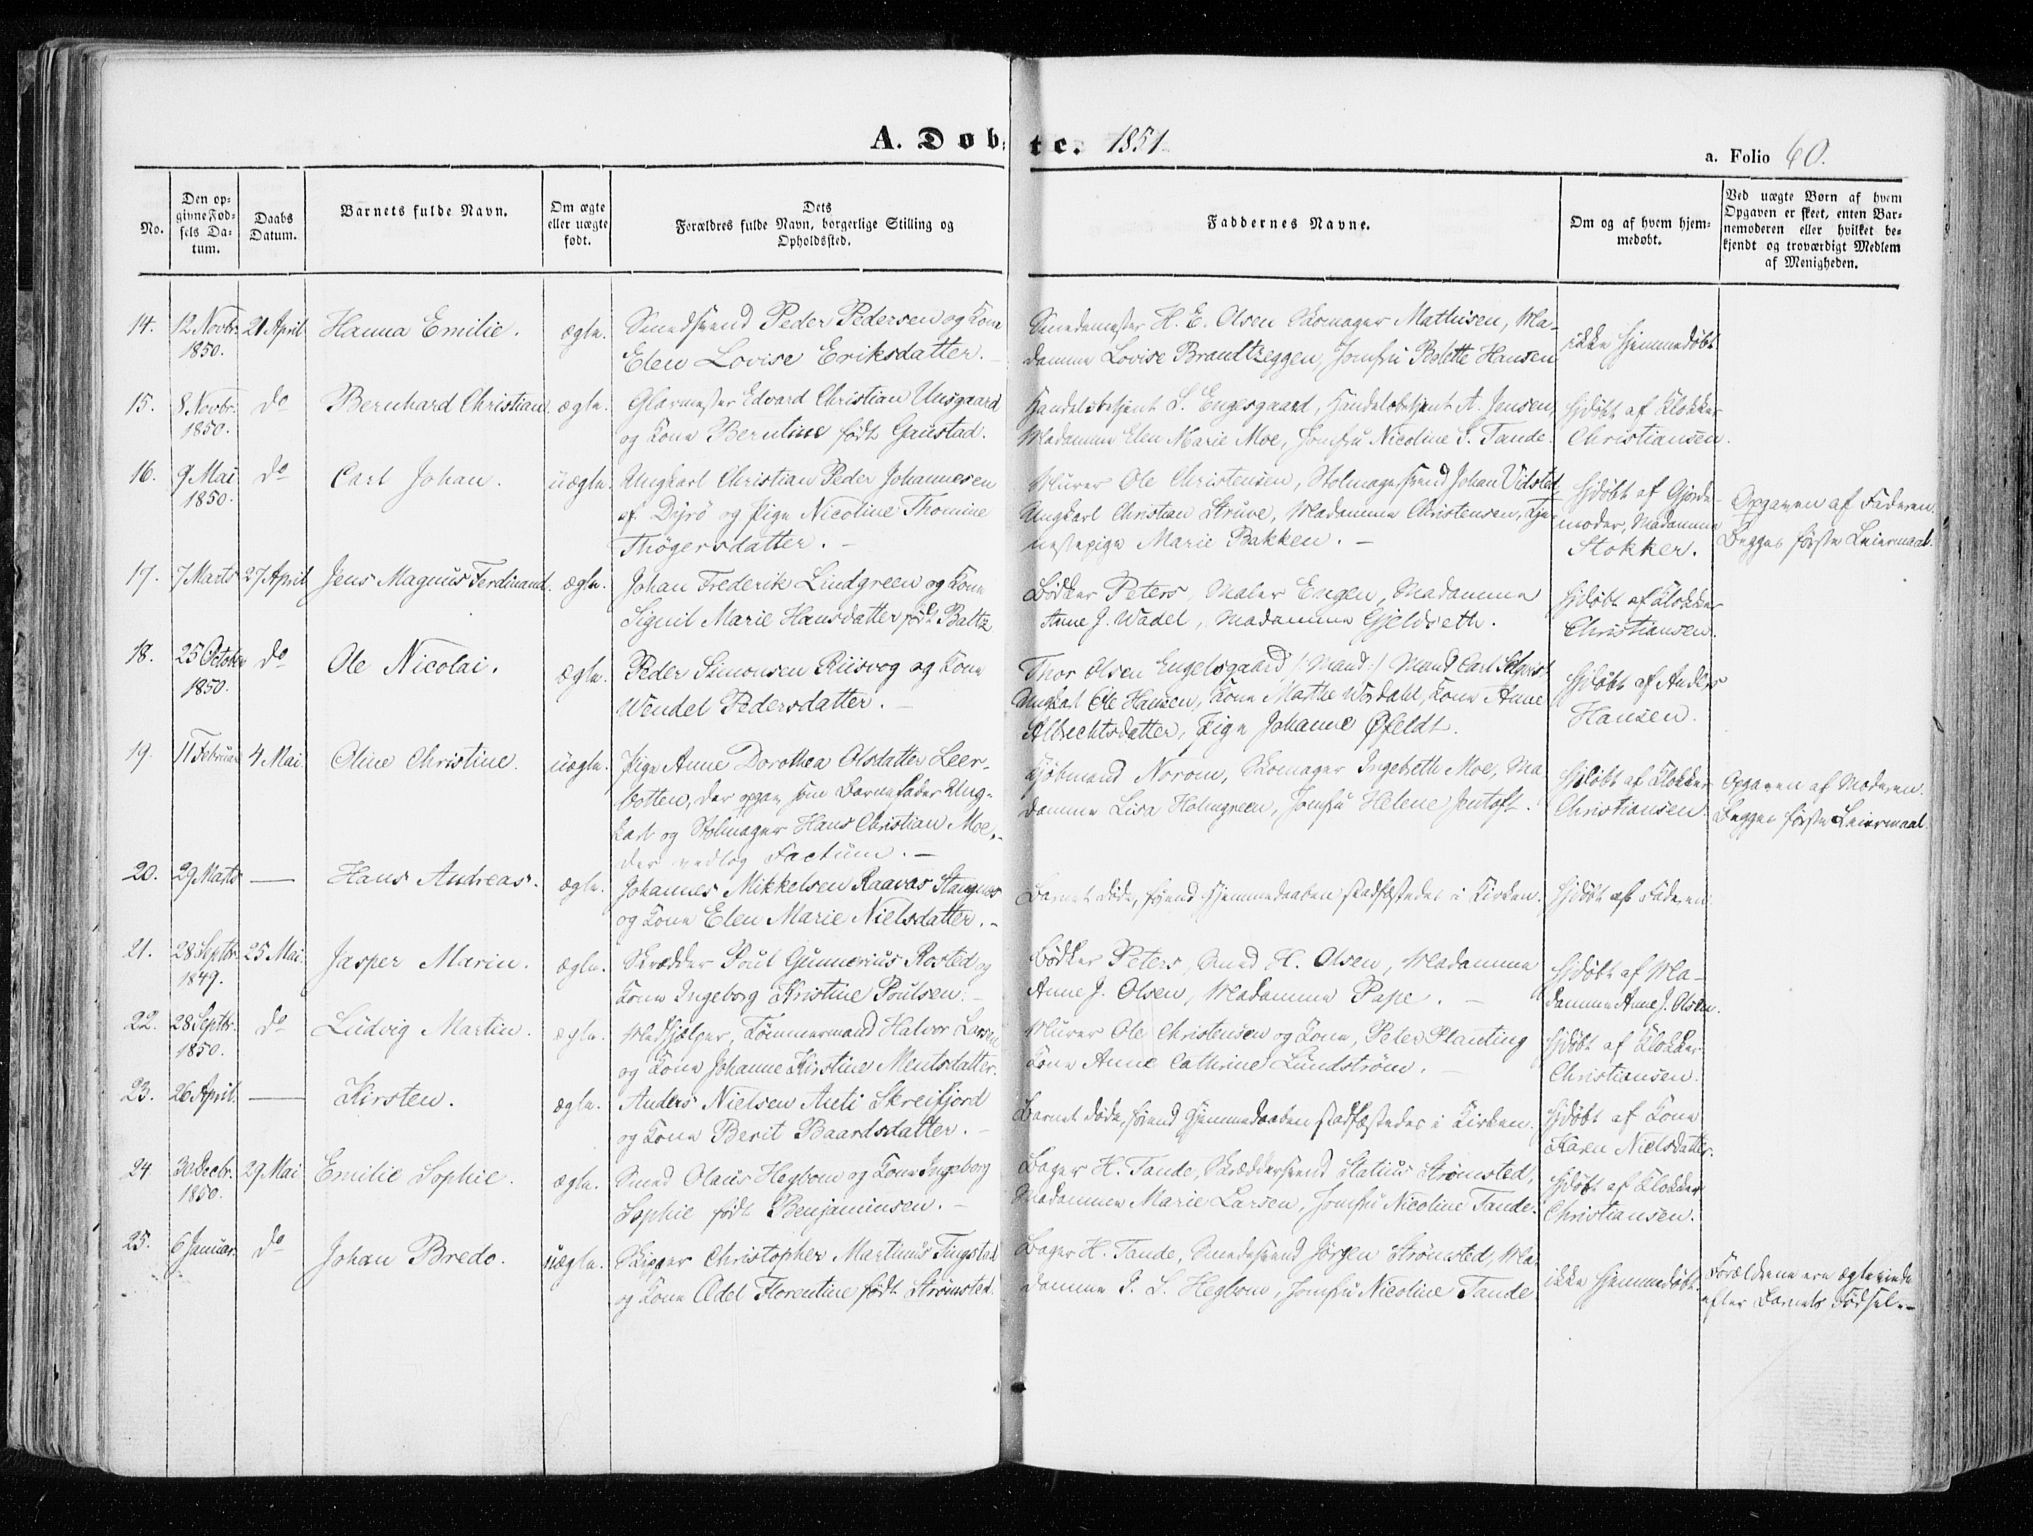 A. Døbte. 1851.
a. Folio 60.
No.
Den op-
givne Fød-
sels Da-
tum.
Daabs
Datum.
Barnets fulde Navn.
Om ægte
eller uægte
født.
Dets
Forældres fulde Navn, borgerlige Stilling og
Opholdssted.
Faddernes Navne.
Om og af hvem hjem-
medøbt.
Ved uægte Børn af hvem
Opgaven er skeet, enten Bar-
nemoderen eller hvilket be-
kjendt og troværdigt Medlem
af Menigheden.
14. 12 Novbr. 1850. 21 April Hanna Emilie. ægte.
Smedsvend Peder Pedersen og Kone
Elen Lovise Eriksdatter. –
Smedemester H. E. Olsen Skomager Mathisen, Ma-
damme Lovise Brandtzeggen, Jomfru Bolette Hansen
ikke hjemmedøbt.
15. 8 Novbr. 1850. do Bernhard Christian ægte.
Glarmester Edvard Christian Unsgaard
og Kone Berntine født Ganstad.
Handelsbetjent L. Engesgaard, Handelsbetjent A. Jensen,
Madamme Elen Marie Moe, Jomfru Nicoline S. Tande.
hjdøbt af Klokker
Christiansen.
16. 9 Mai 1850. do Carl Johan. uægte.
Ungkarl Christian Peder Johannesen
af Dyrø og Pige Nicoline Thomine
Thøgersdatter. –
Murer Ole Christensen, Stolmagersvend Johan Vidsted,
Ungkarl Christian Struve, Madamme Christensen, Tje-
nestepige Marie Bakken. –
hjdøbt af Gjorde-
moder, Madamme
Stokker.
Opgaven af Faderen.
Begges første Leiermaal.
17. 7 Marts 27 April Jens Magnus Ferdinand. ægte.
Johan Frederik Lindgreen og Kone
Signil Marie Hansdatter født Baltz
Bødker Peters, Maler Engen, Madamme
Anne J. Wadel, Madamme Gjeldseth.
hjdøbt af Klokker
Christiansen.
18. 25 October 1850. do Ole Nicolai. ægte.
Peder Simonsen Riisvog og Kone
Wendel Pedersdatter. –
Thor Olsen Engelsgaard /: Mand :/ Mand Carl
Ungkarl Ole Hansen, Kone Marthe Wordahl, Kone Anne
Albrechtsdatter, Pige Johanne Øfeldt.
hjdøbt af Anders
Hansen.
19. 11 Februar 4 Mai Oline Christine. uægte.
Pige Anne Dorothea Olsdatter Leer-
botten, der opgav som Barnefader Ung-
karl og Stolmager Hans Christian Moe,
der vedtog Factum. –
Kjøbmand Norom, Skomager Ingebreth Moe, Ma-
damme Lisa Holmgreen, Jomfru Helene Jentoft.
hjdøbt af Klokker
Christiansen.
Opgaven af Moderen.
Begges første Leiermaal.
20. 29 Marts — Hans Andreas. ægte.
Johannes Mikkelsen Raavas Stangnes
og Kone Elen Marie Nielsdatter. –
Barnet døde, førend hjemmedaaben stadfæstedes i Kirken.
hjdøbt af Faderen.
21. 28 Septbr. 1849. 25 Mai. Jasper Marin. ægte.
Skrædder Poul Gunnerius Rosted og
Kone Ingeborg Kristine Poulsen. –
Bødker Peters, Smed H. Olsen, Madamme
Anne J. Olsen, Madamme Pape. –
hjdøbt af Ma-
damme Anne J. Olsen.
22. 28 Septbr. 1850. do Ludvig Martin. ægte.
Medhjælper, Tømmermand Halvor Larsen
og Kone Johanne Kirstine Mentsdatter.
Murer Ole Christensen og Kone, Peter Planting
Kone Anne Cathrine Lundstrøm. –
hjdøbt af Klokker
Christiansen.
23. 26 April. — Kirsten. ægte.
Anders Nielsen Anti Skreifjord
og Kone Berit Baardsdatter. –
Barnet døde, førend hjemmedaaben stadfæstedes i Kirken.
hjdøbt af Kone
Karen Nielsdatter.
24 30 Decbr. 1850. 29 Mai Emilie Sophie. ægte.
Smed Olaus Hegbom og Kone Ingeborg
Sophie født Benjaminsen. –
Bager H. Tande, Skræddersvend Statius Strømsted,
Madamme Marie Larsen, Jomfru Nicoline Tande.
hjdøbt af Klokker
Christiansen.
25. 6 Januar. do Johan Bredo. uægte.
Skipper Christopher Martinus Tingstad
og Kone Odel Florentine født Strømsted.
Bager H. Tande, Smedesvend Jørgen Strømsted, Ma-
damme S. L. Hegbom, Jomfru Nicoline Tande
ikke hjemmedøbt.
Forældrene ere ægteviede
efter Barnets Fødsel. –